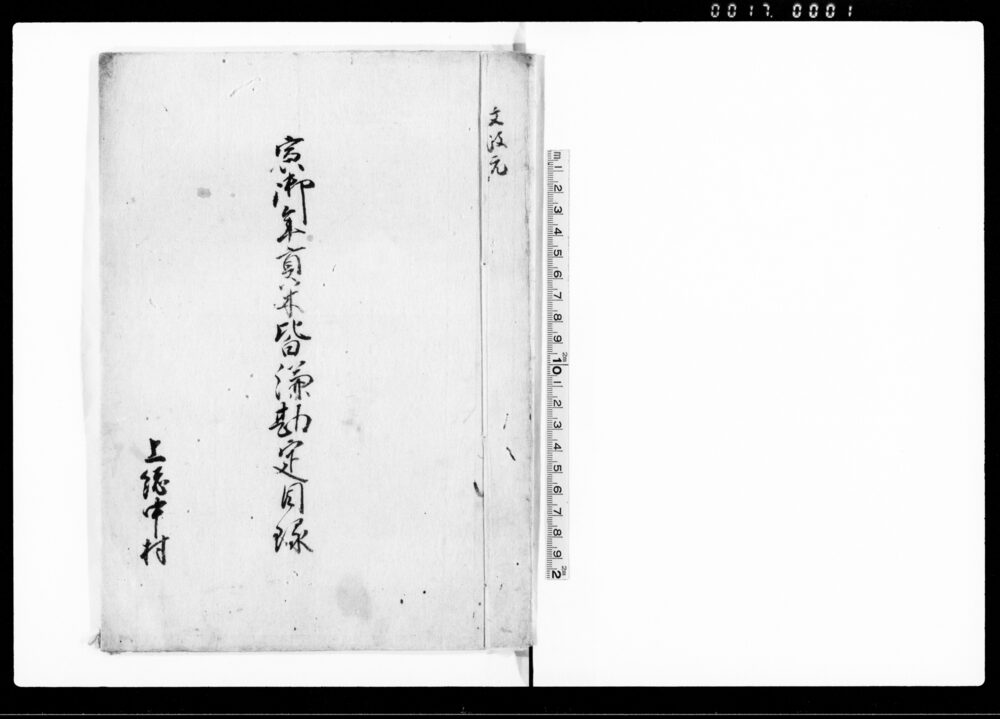 0017. 0001
文政元
寅御年貢米皆済勘定目録
上德中村
m 1 2 3 4 5 6 7 8 9 10 1 2 3 4 5 6 7 8 9 2